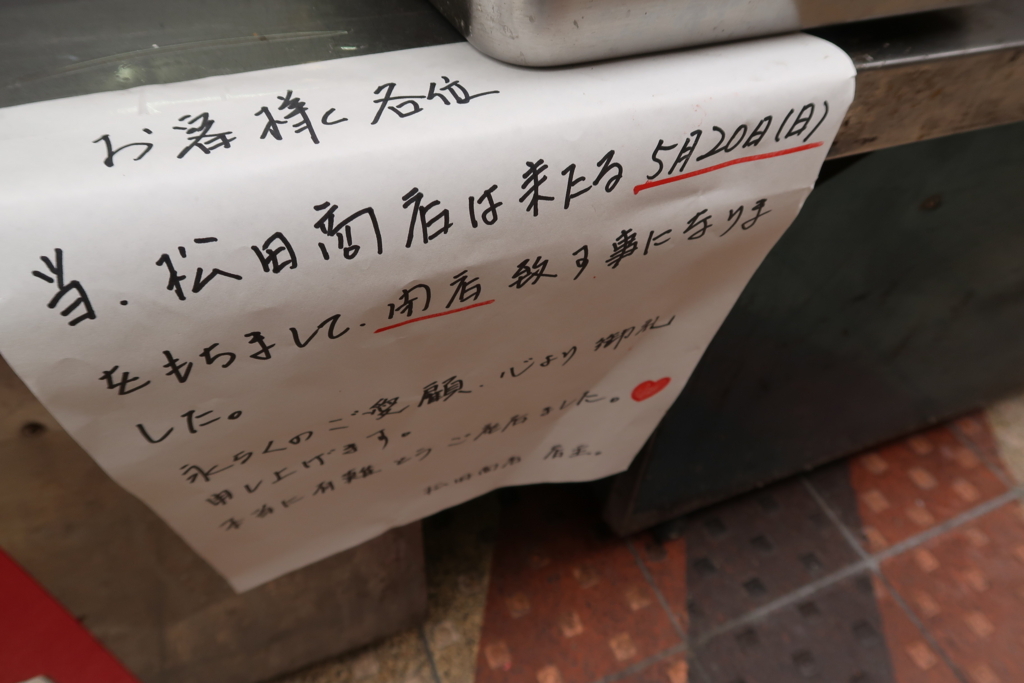 お客様く各位
当.松田商店は来たる5月20日(日)
をもちまして.閉店致す事になりま
した。
永らくのご愛顧.心より御礼
申し上げます。
本当に有難とうございました。
松田商店 店主。